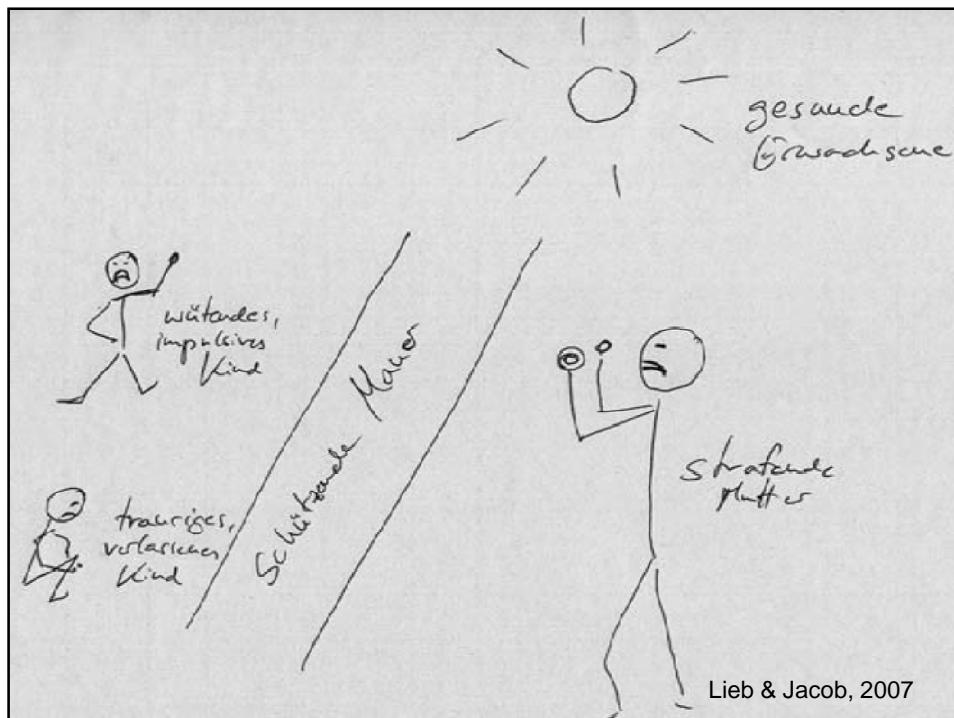 gesunde
Erwachsene
wütendes,
impulsives
Kind
Schützende Mauer
strafende
Mutter
trauriges,
verlassenes
Kind
Lieb & Jacob, 2007